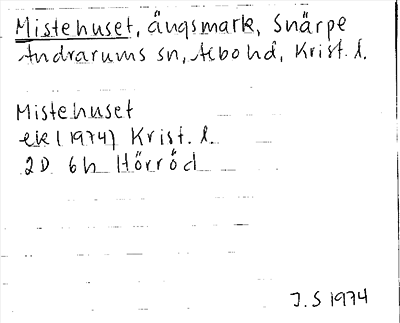 Mistehuset, ängsmark, Snärpe
Andrarums sn, Albo hd, Krist. l.
Mistehuset
ek (1974) Krist. l.
2D 6h Hörröd
J.S 1974